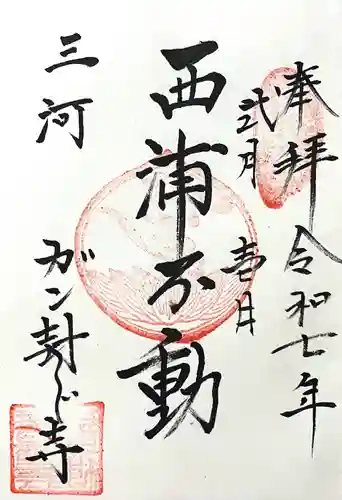 奉拝 令和七年
弐月 壱日
西浦不動
三河 ガン封じ寺